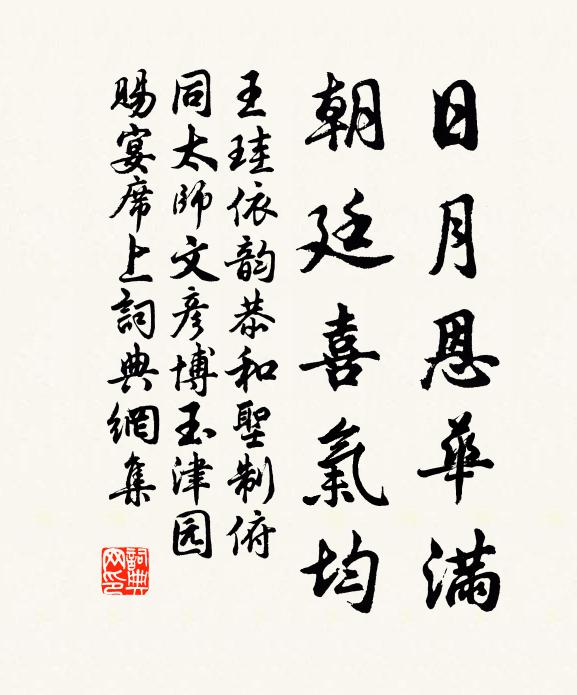 日月恩華滿
朝廷喜氣均
王珪依韵恭和聖制俯
同太師文彦博玉津园
賜宴席上詞典網集
詞典网印